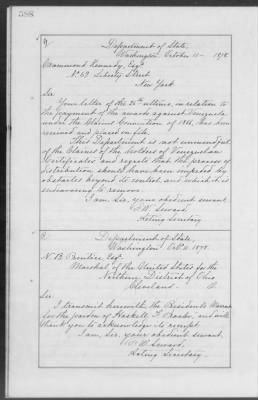 588
Department of State,
Washington, October 11 1878.
Crammond Kennedy, Esqr
No. 69 Liberty Street
New York.
Sir
Your letter of the 25th ultimo, in relation to
the payment of the awards against Venezuela
under the Claims Convention of 1866, has been
received and placed on file.
This Department is not unmindful
of the claims of the holders of Venezuelan
Certificates and regrets that the process of
distribution should have been impeded by
obstacles beyond its control, and which it is
endeavoring to remove.
I am, Sir, your obedient servant
F. W. Seward,
Acting Secretary
Department of State,
Washington Oct. 11, 1878.
Esqr.
Marshal of the United States for the
Northern District of Ohio
Cleveland O.
Sir
I transmit herewith, the President's Warrant
for the pardon of Haskell F. and will
thank you to acknowledge its receipt.
I am, Sir, your obedient servant,
F. W. Seward,
Acting Secretary.